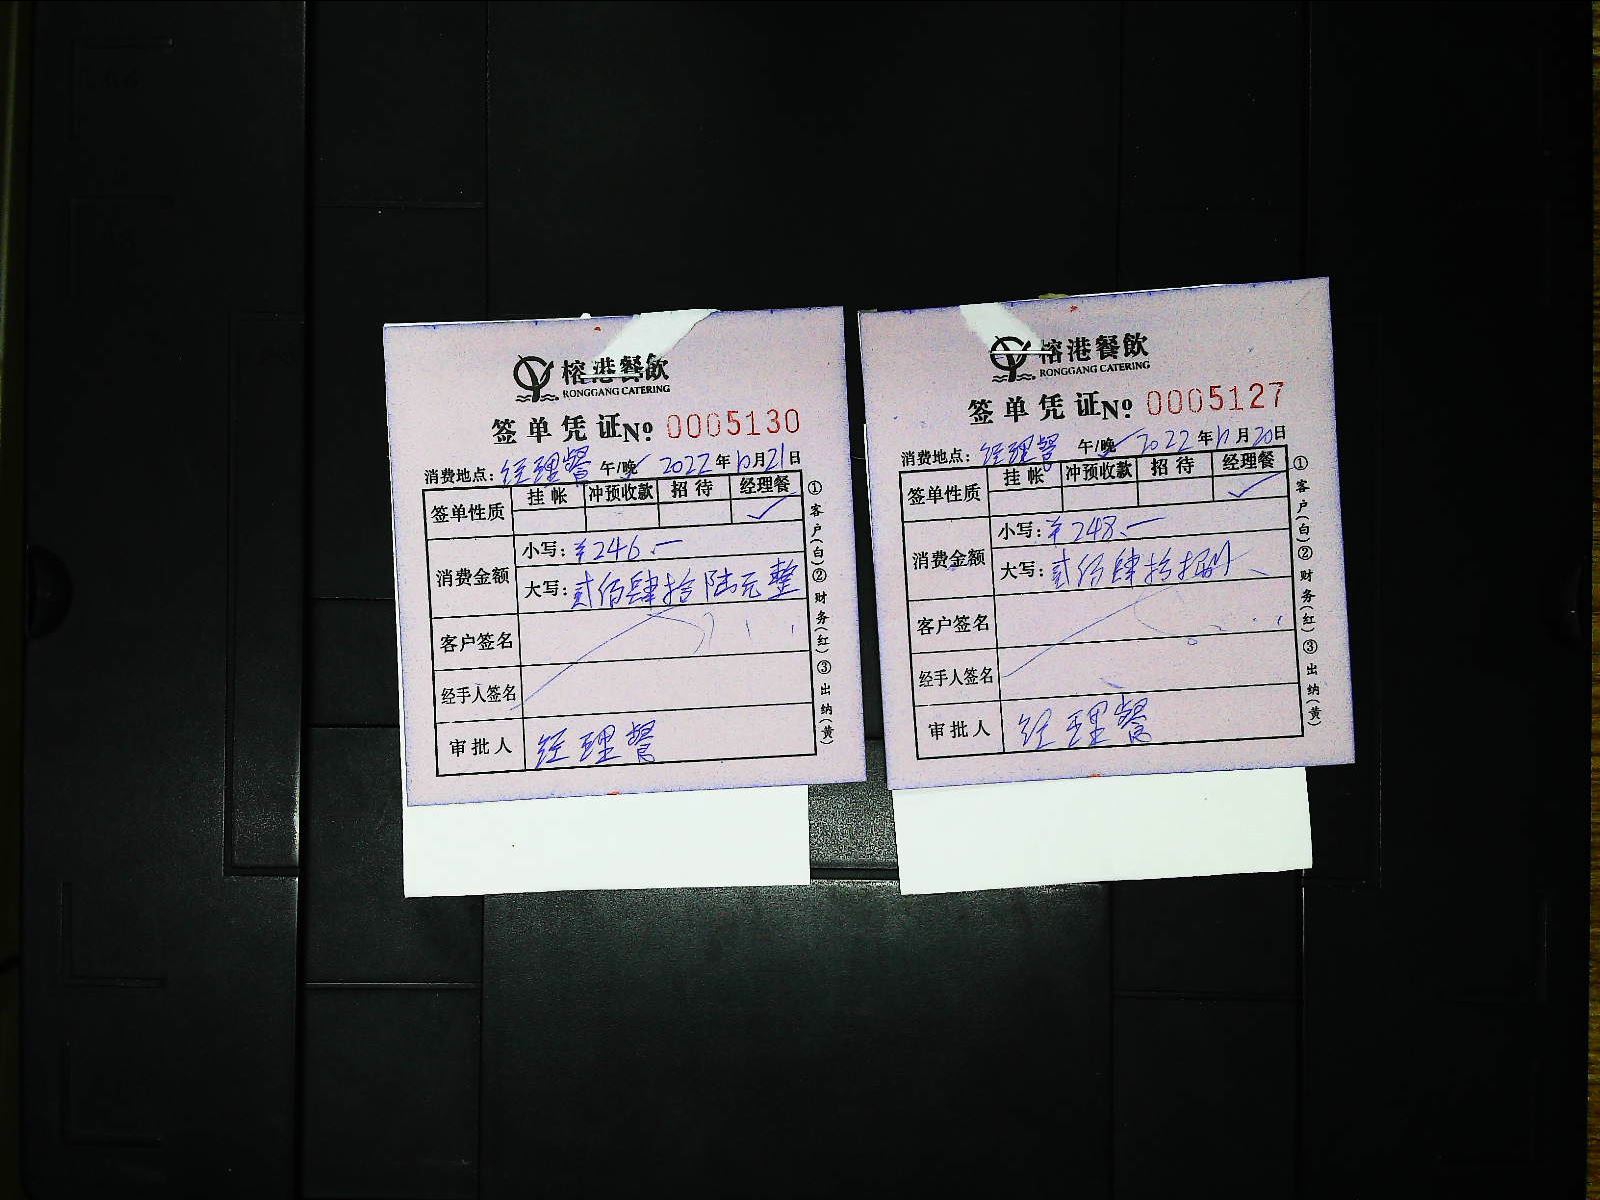 榕港餐飲
RONGGANG CATERING
签单凭证No 0005130
消费地点：经理餐 午/晚 2022年10月21日
签单性质 挂帐 冲预收款 招待 经理餐
消费金额
小写：¥246.一
大写：贰佰肆拾陆元整
客户签名
经手人签名
审批人 经理餐
①客户(白)②财务(红)③出纳(黄)
榕港餐飲
RONGGANG CATERING
签单凭证No 0005127
消费地点：经理餐 午/晚 2022年10月20日
签单性质 挂帐 冲预收款 招待 经理餐
消费金额
小写：¥248.一
大写：贰佰肆拾捌
客户签名
经手人签名
审批人 经理餐
①客户(白)②财务(红)③出纳(黄)